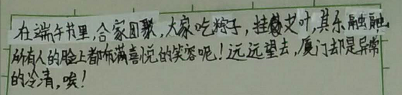 在端午节里,合家团聚,大家吃粽子,挂艾叶,其乐融融,
所有人的脸上都布满喜悦的笑容呢!远远望去,厦门却是异常
的冷清,唉!